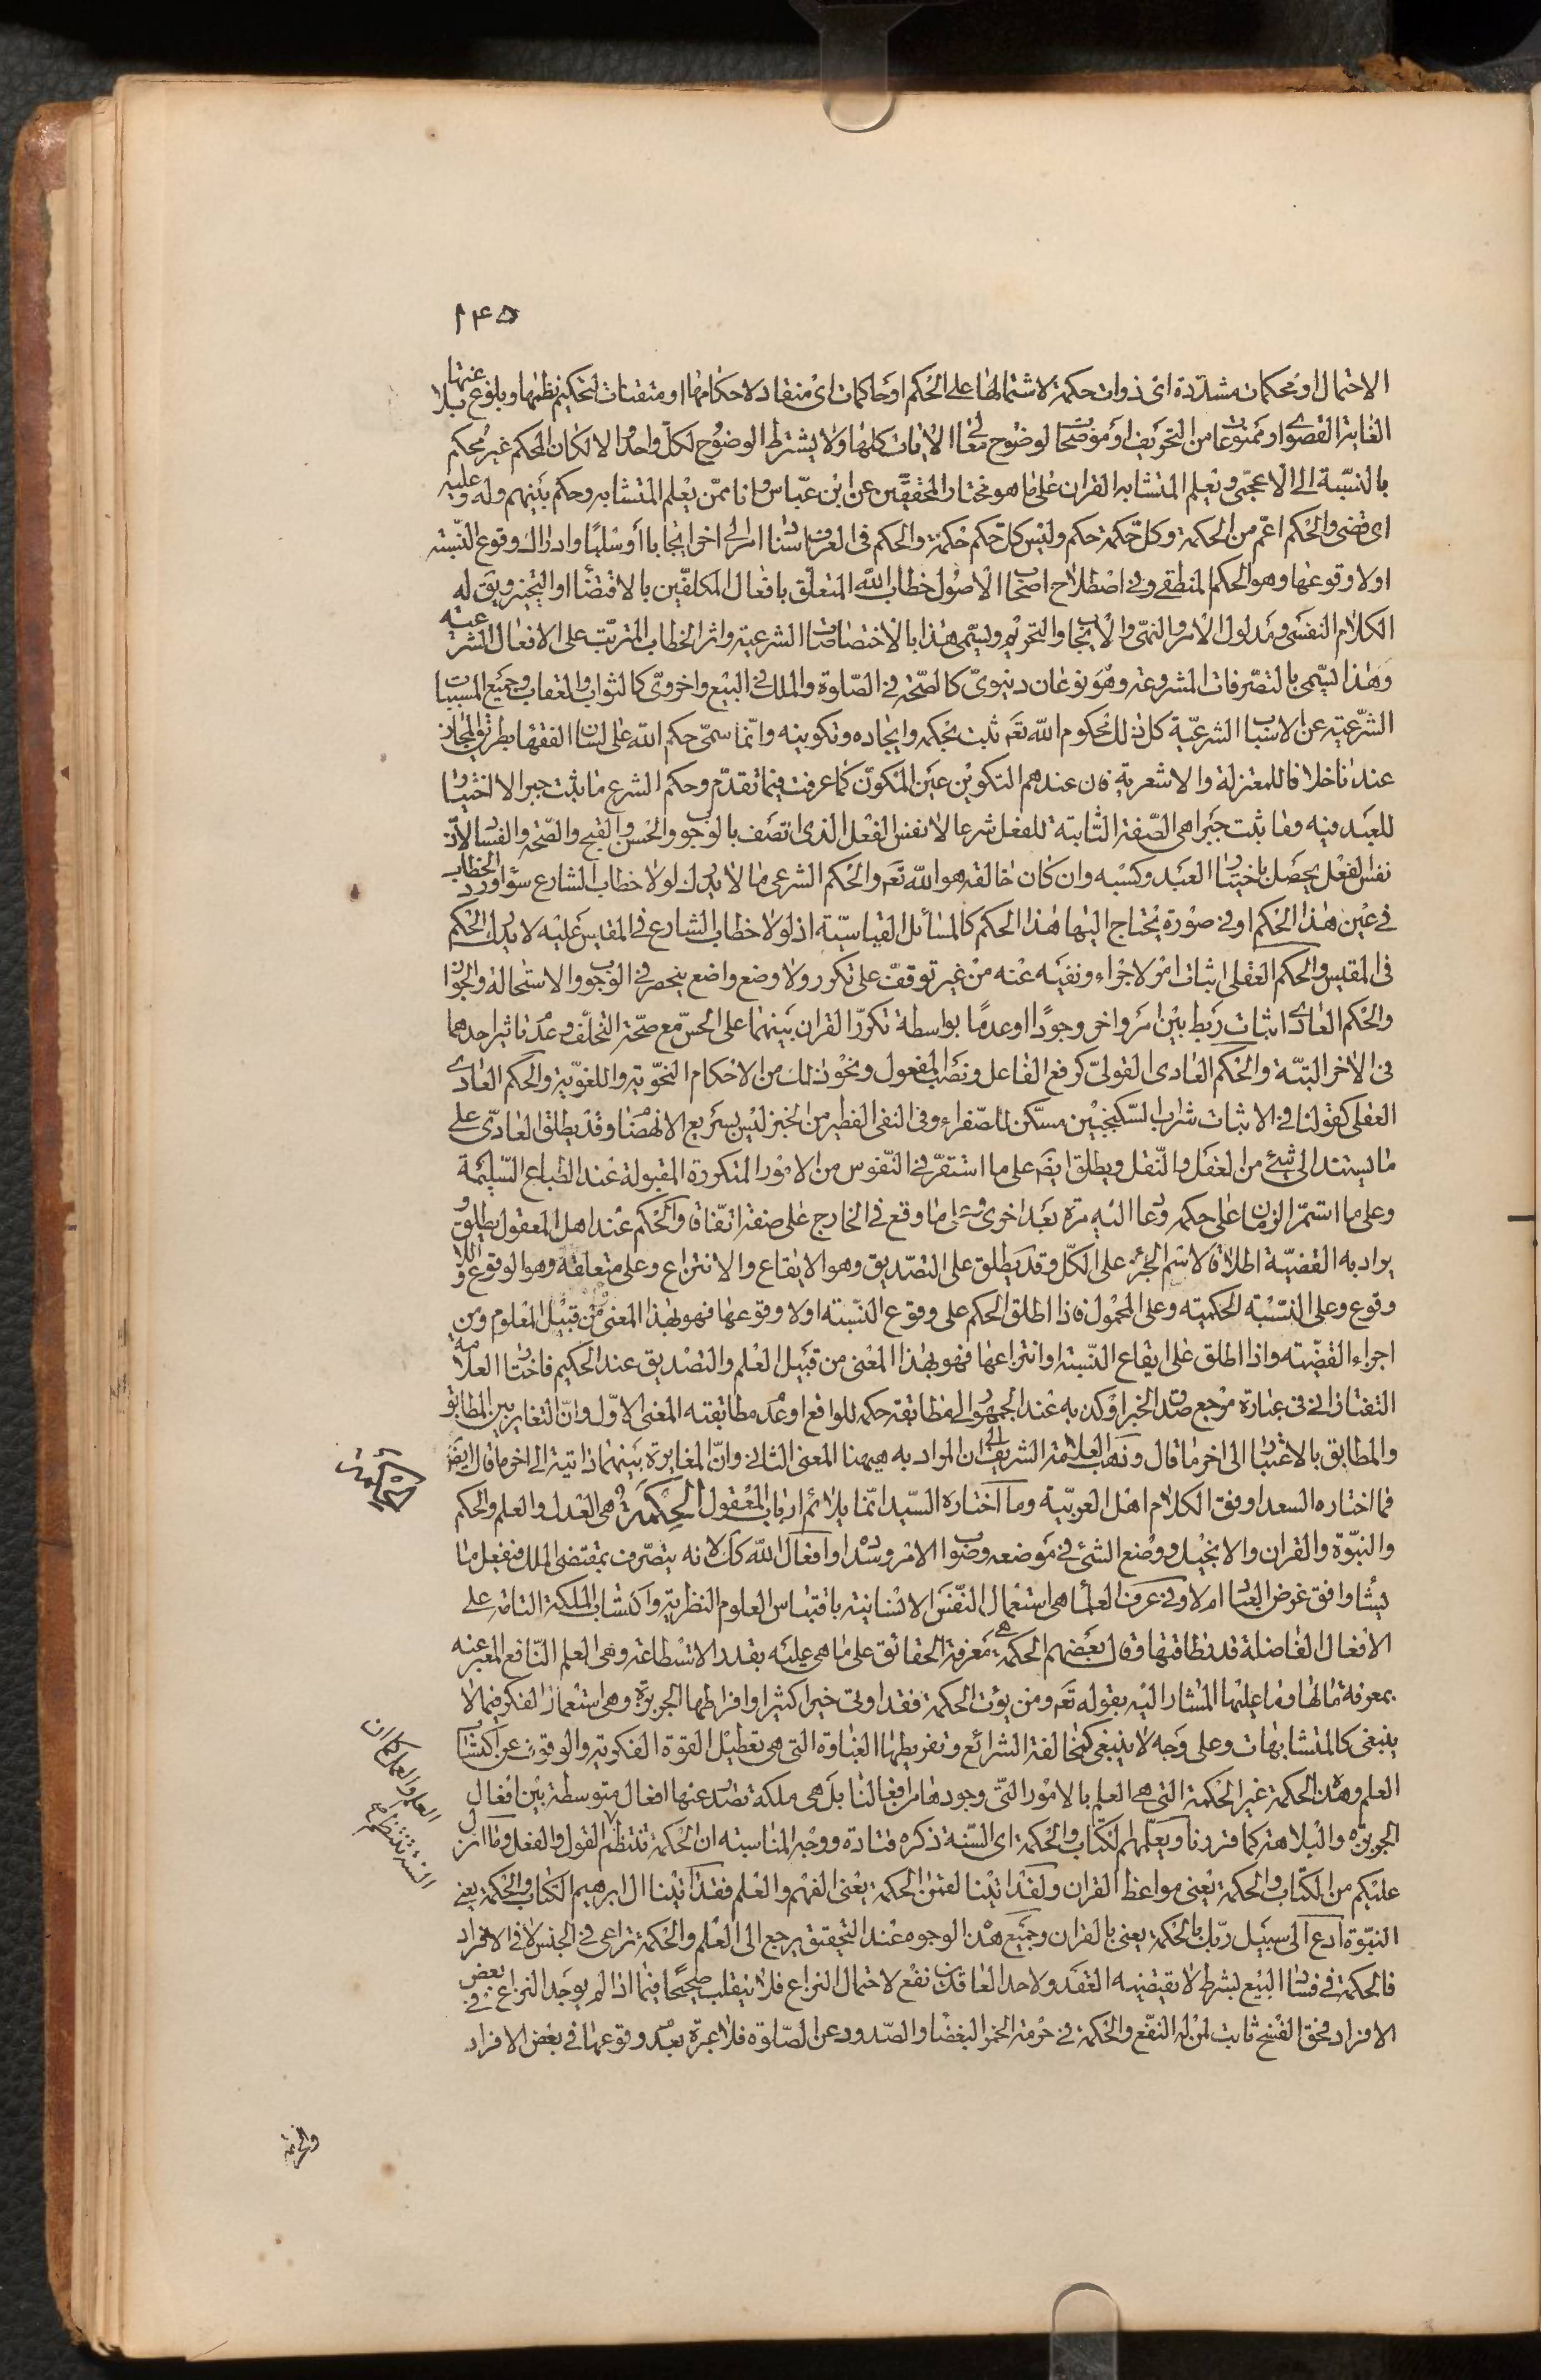 ۱۴۵
الاحتمال او محكمات مشدّدة اى ذوات حكمة لاشتمالها على الحكم او حاكمات اى منقاد لاحكامها او متقنات لتحكيم نظمها وبلوغ بلاغتها
الغاية القصوى او ممنوعات من التحريف او موضحا لوضوح معانى الايات كلها ولا يشترط الوضوح لكل واحد والا لكان المحكم غير محكم
بالنسبة الى الاعجمى ويعلم المتشابه القران على ما هو مختار المحققين عن ابن عباس وانا ممن يعلم المتشابه وحكم بينهم وله وعليه
اى قضى والحكم اعم من الحكمة وكل حكمة حكم وليس كل حكم حكمة والحكم فى العرف اسناد امر الى اخر ايجابا أو سلبًا وادراك وقوع النسبة
اولا وقوعها وهو الحكم المنطقى وفى اصطلاح اصحاب الاصول خطاب الله المتعلق بافعال المكلفين بالاقتضأ او التخيير ويق له
الكلام النفسى ومدلول الامر والنهى والايجاب والتحريم ويسمى هذا بالاختصاصات الشرعية واثر الخطاب المترتب على الافعال الشرعية
وهذا يسمى بالتصرفات المشروعة وهو نوعان دنيوى كالصحة فى الصلوة والملك فى البيع واخروى كالثواب والعقاب وجميع المسببات
الشرعية عن الاسباب الشرعية كل ذلك محكوم الله تعم ثبت بحكمه وايجاده وتكوينه وانما سمى حكم الله على لسان الفقها بطريق المجاز
عندنا خلافا للمعتزلة والاشعرية فان عندهم التكوين عين المكون كما عرفت فيما تقدم وحكم الشرع ما يثبت جبرا لا اختيار
للعبد فيه وما يثبت جبرا هى الصفة الثابتة للفعل شرعا لا نفس الفعل الذى اتصف بالوجوب والحسن والقبح والصحة والفساد لان
نفس الفعل يحصل باختيار العبد وكسبه وان كان خالقه هو الله تعم والحكم الشرعى ما لا يدرك لولا خطاب الشارع سواء ورد الخطاب
فى عين هذا الحكم او فى صورة يحتاج اليها هذا الحكم كالمسائل القياسية اذ لولا خطاب الشارع فى المقيس عليه لا يدرك الحكم
فى المقيس والحكم العقلى اثبات امر لاجراء ونفيه عنه من غير توقف على تكرر ولا وضع واضع ينحصر فى الوجوب والاستحالة والجواز
والحكم العادى اثبات ربط بين امر واخر وجودًا او عدمًا بواسطة تكرر القران بينهما على الحس مع صحة التخلف وعدم تاثير احدهما
فى الاخر البتة والحكم العادى القولى كرفع الفاعل ونصب المفعول ونحو ذلك من الاحكام النحوية واللغوية والحكم العادى
الفعلى كقولنا فى الاثبات شراب السكنجبين مسكن للصفراء وفى النفى الفطير من الخبز ليس بسريع الانهضام وقد يطلق العادى على
ما يستند الى شئ من العقل والنقل ويطلق ايضم على ما استقر فى النفوس من الامور المتكررة المقبولة عند الطباع السليمة
وعلى ما استمر الزمان على حكمه وعاد اليه مرة بعد اخرى وعلى ما وقع فى الخارج على صفة اتفاقا والحكم عند اهل المعقول يطلق و
يراد به القضية اطلاقا لاسم الجزء على الكل وقد يطلق على التصديق وهو الايقاع والانتزاع وعلى متعلقه وهو الوقوع واللا
وقوع وعلى النسبة الحكمية وعلى المحمول فاذا اطلق الحكم على وقوع النسبة اولا وقوعها فهو بهذا المعنى من قبيل المعلوم ومن
اجراء القضية واذا اطلق على ايقاع النسبة او انتزاعها فهو بهذا المعنى من قبيل العلم والتصديق عند الحكيم فاختار العلامة
التفتازانى فى عبارة مرجع صدق الخبر او كذبه عند الجمهور الى مطابقة حكمه للواقع او عدم مطابقته المعنى الاول وان التغاير بين المطابق
والمطابق بالاعتبار الى اخر ما قال وذهب العلامة الشريف الى ان المراد به هيهنا المعنى الثانى وان المغايرة بينهما ذاتية الى اخر ما قال ايضم
فما اختاره السعد اوفق لكلام اهل العربية وما اختاره السيد انما يلائم ارباب المعقول الحكمة هى العدل والعلم والحكم
والنبوة والقران والانجيل ووضع الشئ فى موضعه وصواب الامر وسداده وافعال الله كك لانه يتصرف بمقتضى الملك فيفعل ما
يشاء وافق غرض العباد ام لا وفى عرف العلماء هى استعمال النفس الانسانية باقتباس العلوم النظرية واكتساب الملكة التامة على
الافعال الفاضلة قدر طاقتها وقال بعضهم الحكمة هى معرفة الحقائق على ما هى عليه بقدر الاستطاعة وهى العلم النافع المعبر عنه
بمعرفة ما لها وما عليها المشار اليه بقوله تعم ومن يؤت الحكمة فقد اوتى خيرا كثيرا وافراطها الجربزة وهى استعمال الفكر فيما لا
ينبغى كالمتشابهات وعلى وجه لا ينبغى كمخالفة الشرائع وتفريطها الغباوة التى هى تعطيل القوة الفكرية والوقوف عن اكتساب
العلم وهذه الحكمة غير الحكمة التى هى العلم بالامور التى وجودها من افعالنا بل هى ملكة تصدر عنها افعال متوسطة بين افعال
الجربزة والبلاهة كما قررنا ويعلمهم الكتاب والحكمة اى السنة ذكره قتادة ووجه المناسبة ان الحكمة تنتظم القول والفعل وما انزل
عليكم من الكتاب والحكمة يعنى مواعظ القران ولقد اتينا لقمن الحكمة يعنى الفهم والعلم فقد اتينا ال ابرهيم الكتاب والحكمة يعنى
النبوة ادع الى سبيل ربك بالحكمة يعنى بالقران وجميع هذه الوجوه عند التحقيق يرجع الى العلم والحكمة تراعى فى الجنس لا فى الافراد
فالحكمة فى فساد البيع بشرط لا يقتضيه العقد ولاحد العاقدين نفع لاحتمال النزاع فلا ينقلب صحيحا فيما اذا لم يوجد النزاع فى بعض
الافراد فحق الفسخ ثابت لمن له النفع والحكمة فى حرمة الخمر البغضا والصدود عن الصلوة فلا عبرة بعدم وقوعها فى بعض الافراد
الحكمة
العلم والعمل كما ان
السنة تنتظم
والحرمة